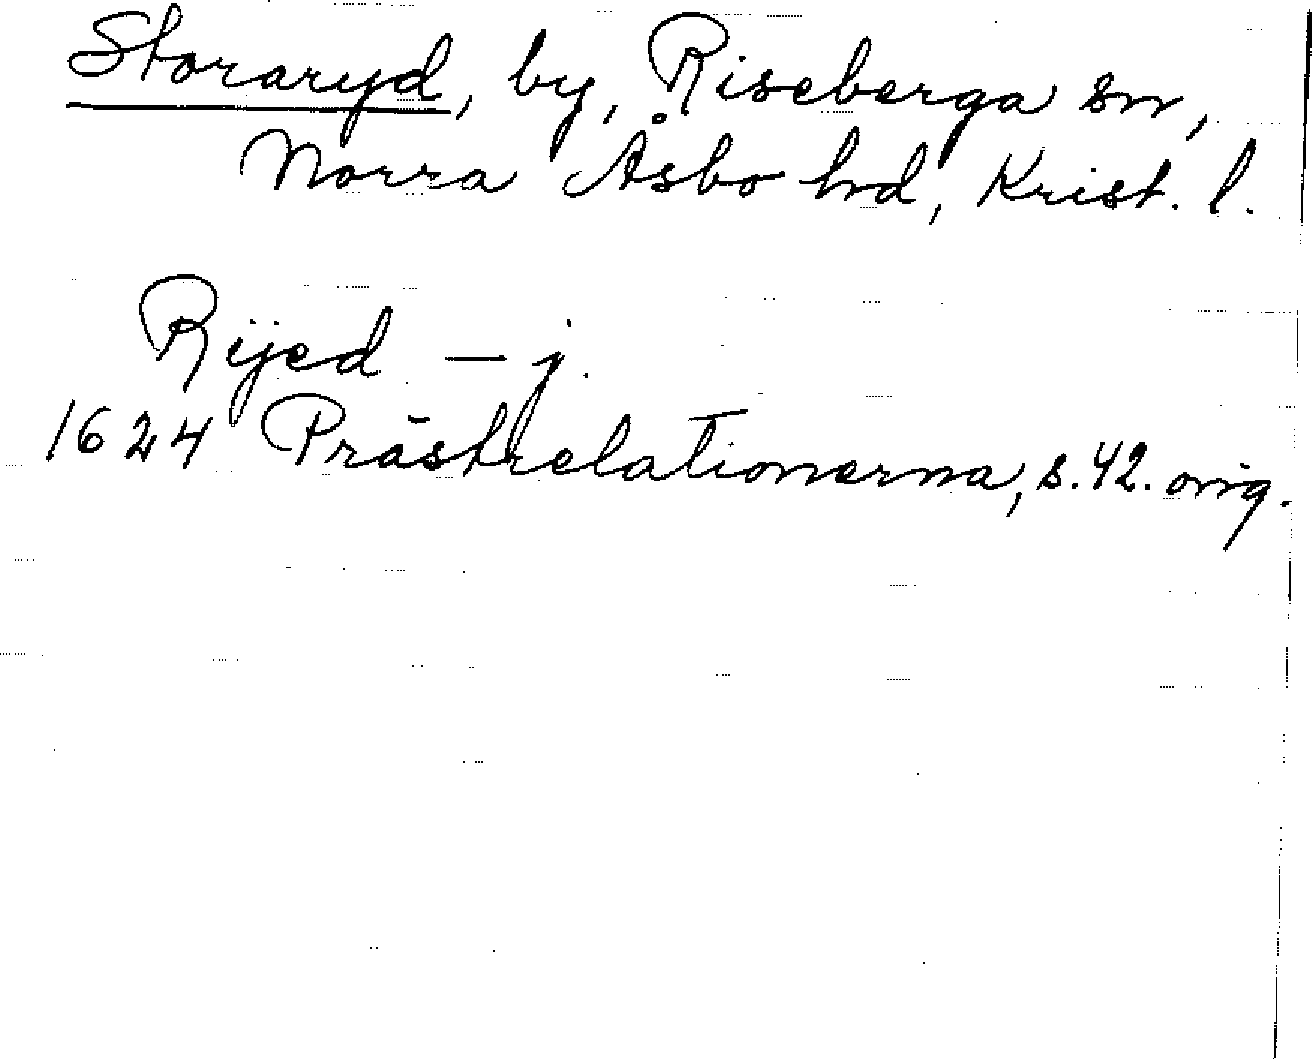 Storaryd, by, Riseberga sn,
Norra Åsbo hd, Krist. l.
Rijed — j.
1624 Prästrelationerna, s. 42. orig.